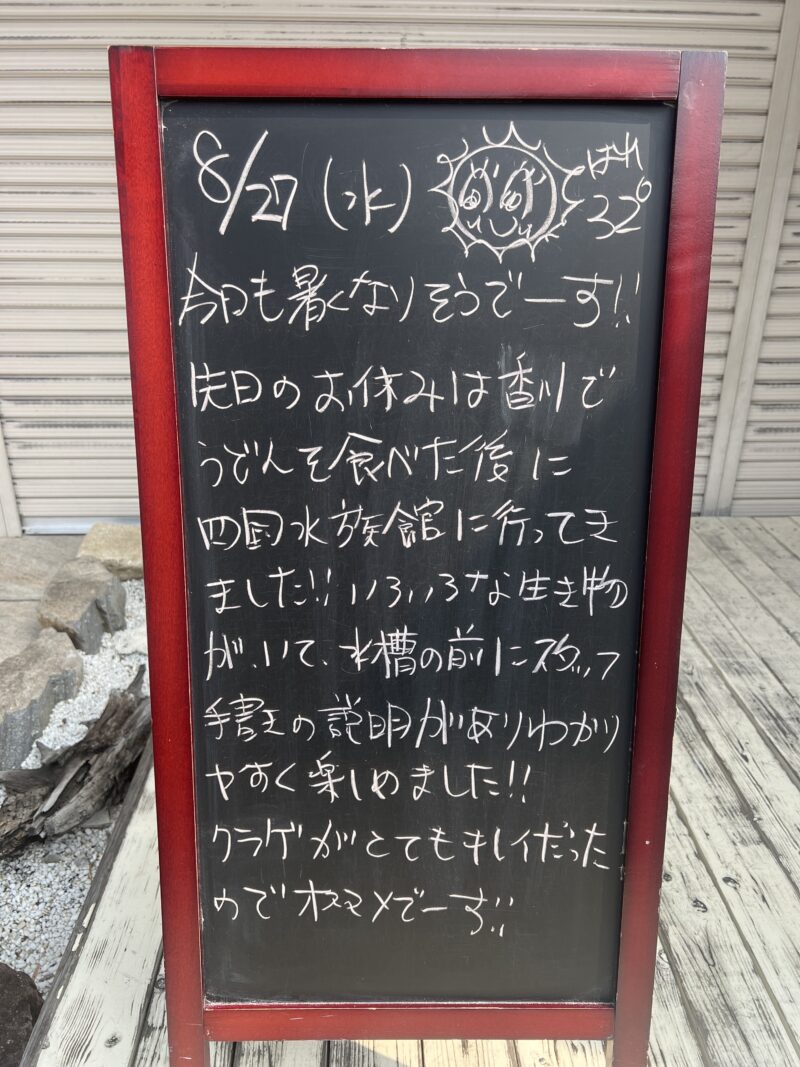 8/27 (水) はれ 32°
今日も暑くなりそうでーす!!
先日のお休みは香川で
うどんを食べた後に
四国水族館に行ってき
ました!! いろいろな生き物
が、いて、水槽の前にスタッフ
手書きの説明がありわかり
やすく楽しめました!!
クラゲがとてもキレイだった
のでオススメでーす!!